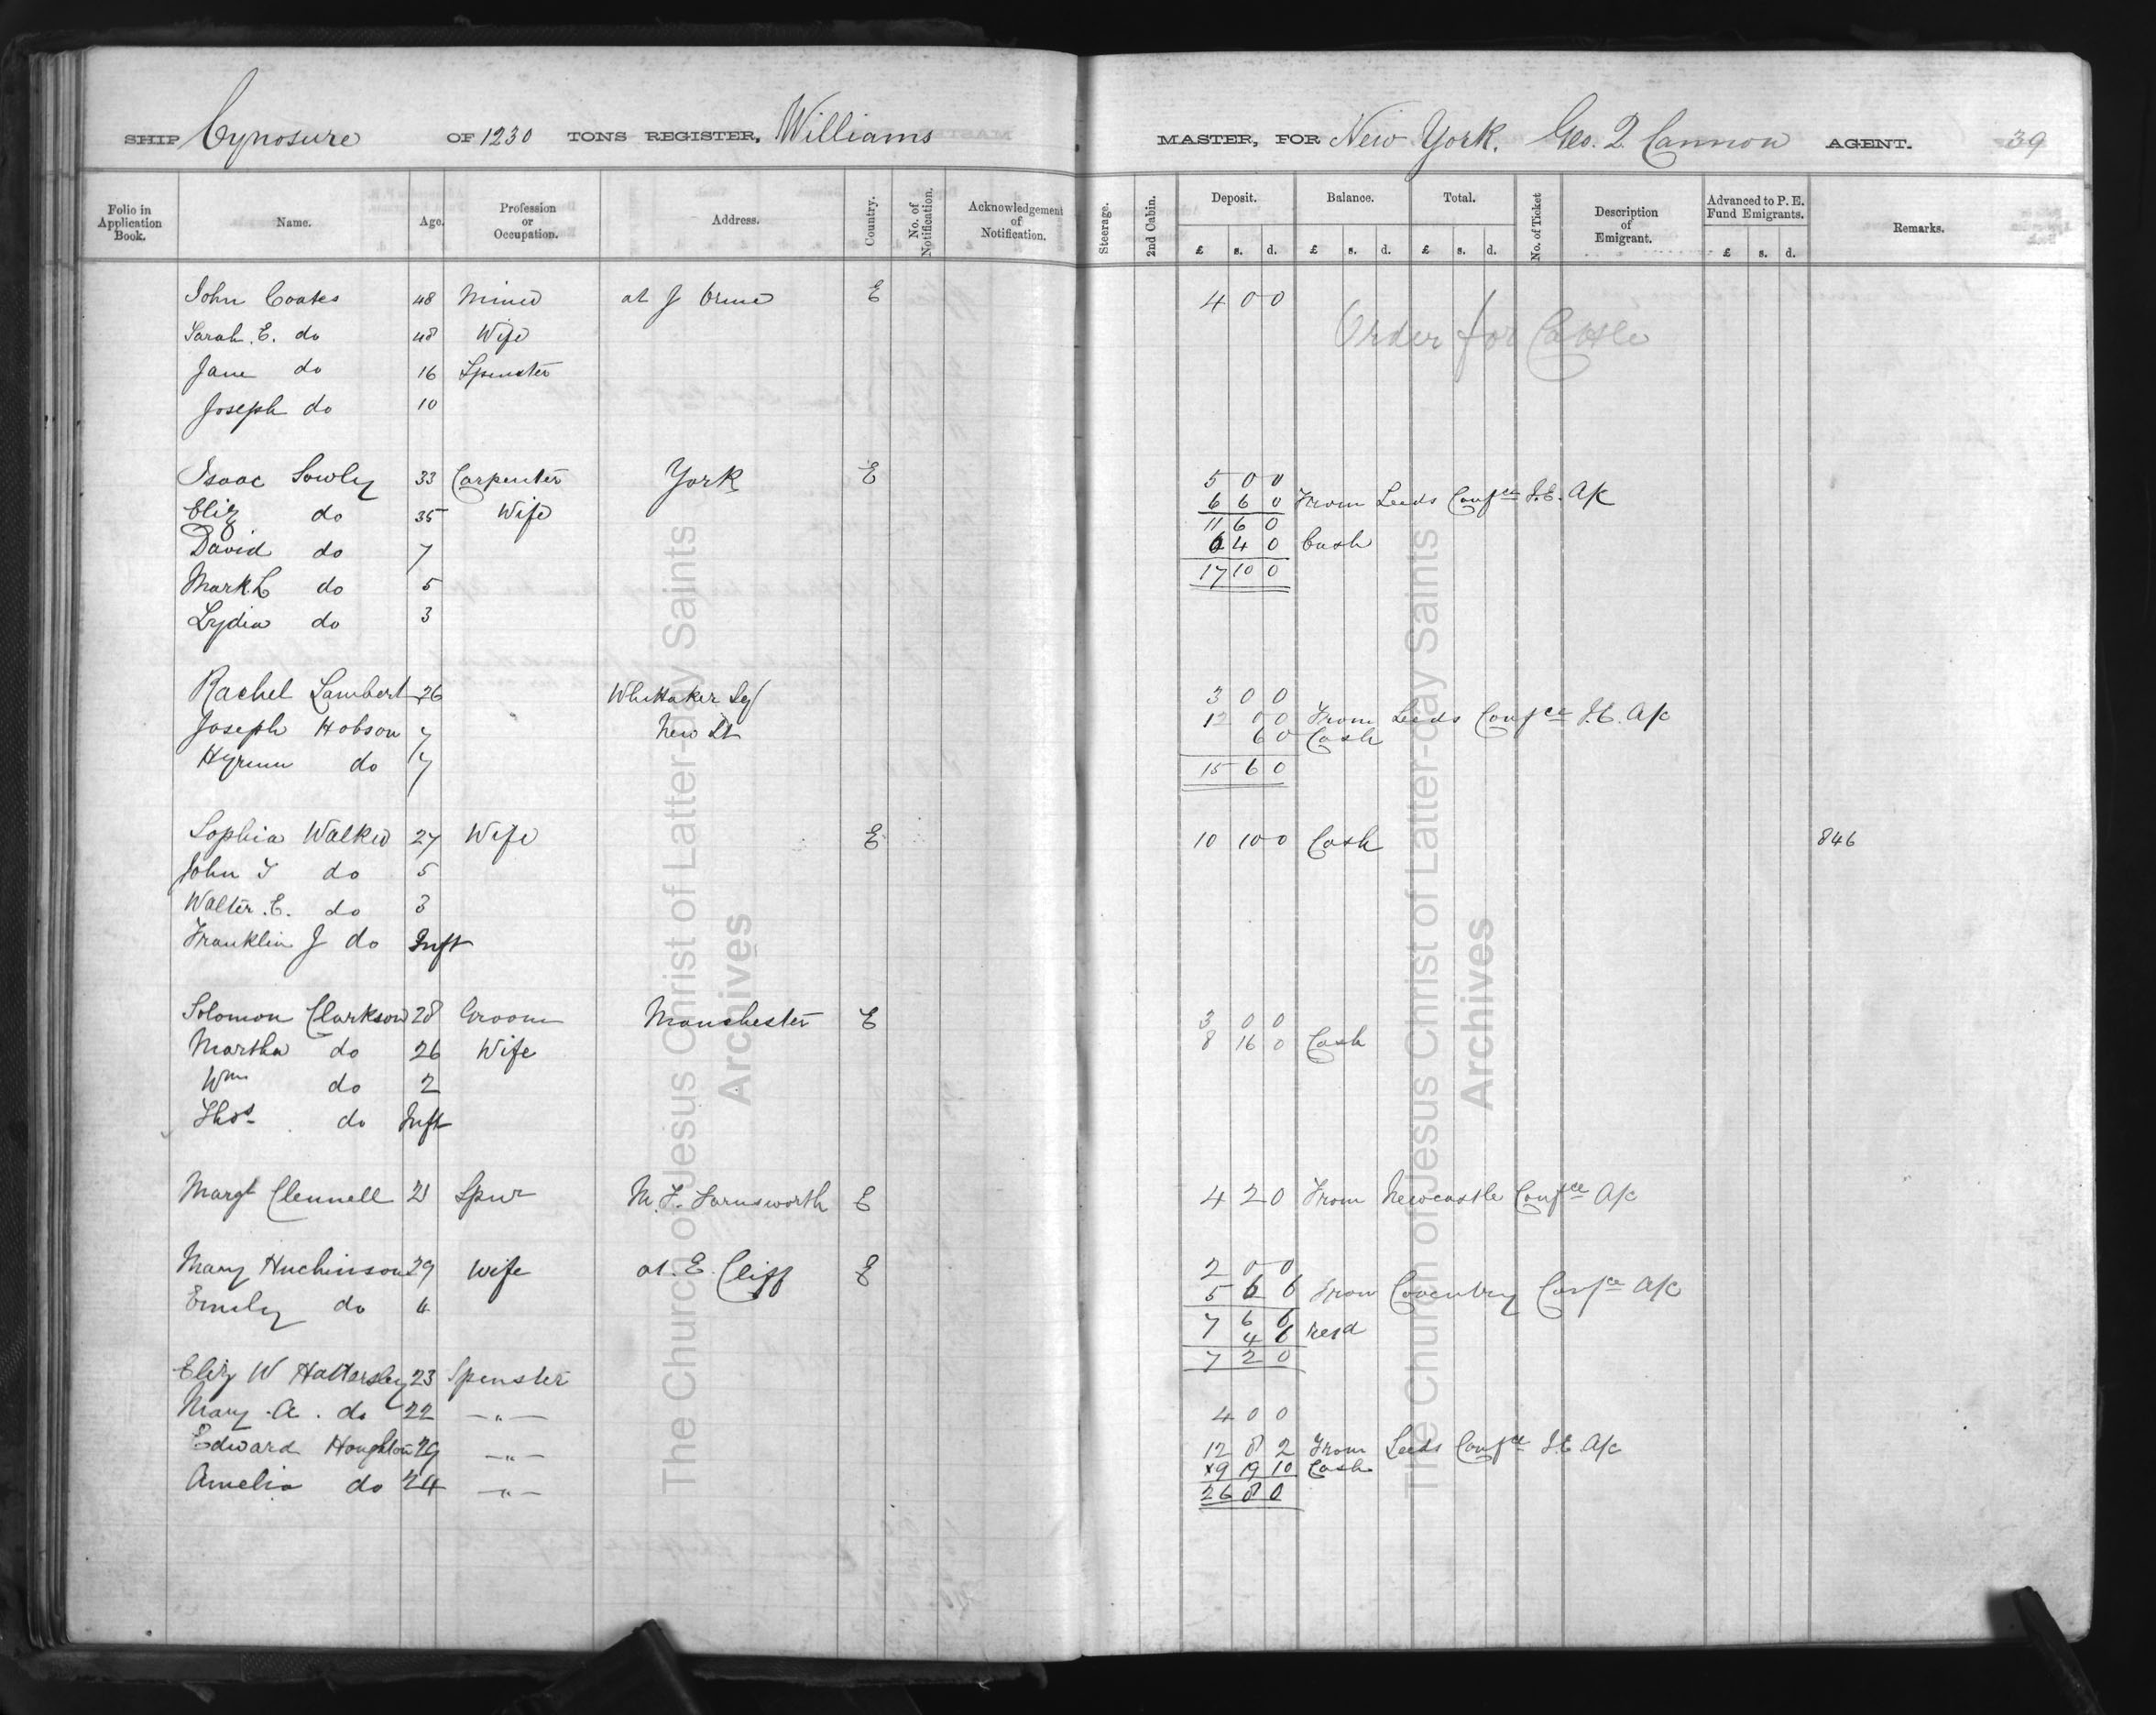 SHIP Cynosure OF 1230 TONS REGISTER, Williams MASTER, FOR New York. Geo. Q Cannon AGENT. 39
Folio in Application Book. Name. Age. Profession or Occupation. Address. Country. No. of Notification. Acknowledgement of Notification. Steerage. 2nd Cabin. Deposit. Balance. Total. No. of Ticket Description of Emigrant. Advanced to P. E. Fund Emigrants. Remarks.
£ s. d. £ s. d. £ s. d. £ s. d.
John Coates 48 Miner at J Orme E 4 0 0
Sarah. E. do 48 Wife Order for
Jane do 16 Spinster
Joseph do 10
Isaac Sowby 33 Carpenter York E 5 0 0
Eliz do 35 Wife 6 6 0 From Leeds Confce I.E. A/c
11 6 0
David do 7 6 4 0 Cash
Mark L do 5 17 10 0
Lydia do 3
Rachel Lambert 26 Whittaker 3 0 0
Joseph Hobson 7 New St 12 0 0 From Leeds Confce I.E. A/c
6 0 Cash
Hyrum do 7 15 6 0
Sophia Walker 27 Wife E 10 10 0 Cash 846
John T do 5
Walter. E. do 3
Franklin J do Inft
Solomon Clarkson 28 Groom Manchester E 3 0 0
Martha do 26 Wife 8 16 0 Cash
Wm do 2
Thos do Inft
Margt Clennell 21 Spinr M. F. Farnsworth E 4 2 0 From Newcastle Confce A/c
Mary Huchinson 29 Wife at. E. Cliff E 2 0 0
5 6 6 From Coventry Confce A/c
Emily do 4 7 6 6
4 6 retd
7 2 0
Eliz W Hattersley 23 Spinster
Mary. A. do 22 — " — 4 0 0
Edward Houghton 29 — " — 12 8 2 From Leeds Confce I.E. A/c
×9 19 10 Cash
Amelia do 24 — " — 26 8 0
The Church of Jesus Christ of Latter-day Saints
Archives
The Church of Jesus Christ of Latter-day Saints
Archives